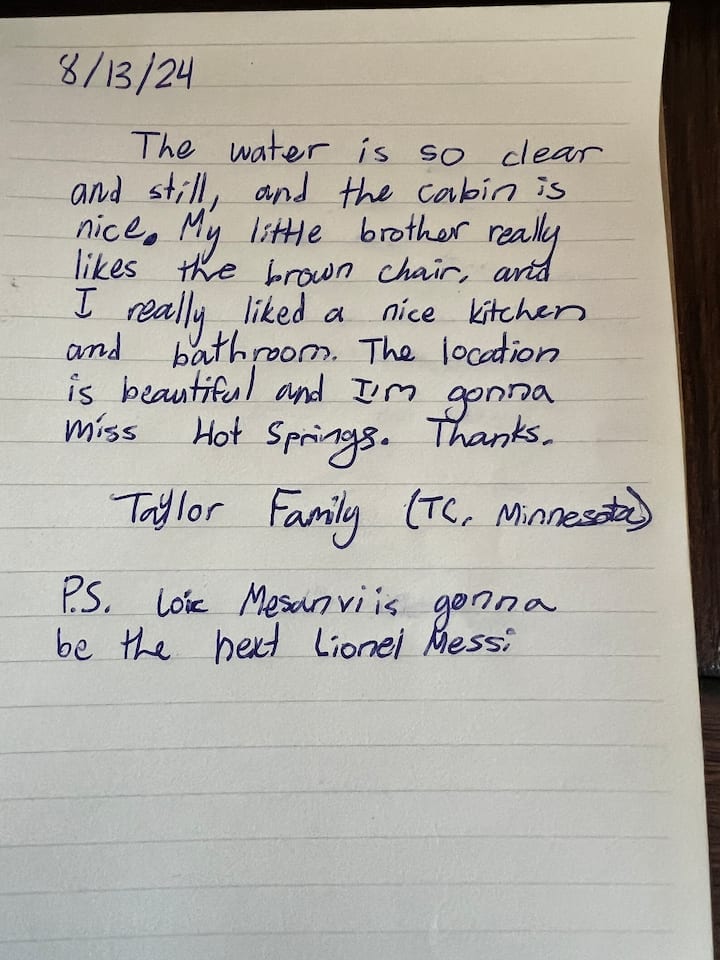 8/13/24
The water is so clear
and still, and the cabin is
nice. My little brother really
likes the brown chair, and
I really liked a nice kitchen
and bathroom. The location
is beautiful and I'm gonna
miss Hot Springs. Thanks.
Taylor Family (TC, Minnesota)
P.S. Loïc Mesanvi is gonna
be the next Lionel Messi